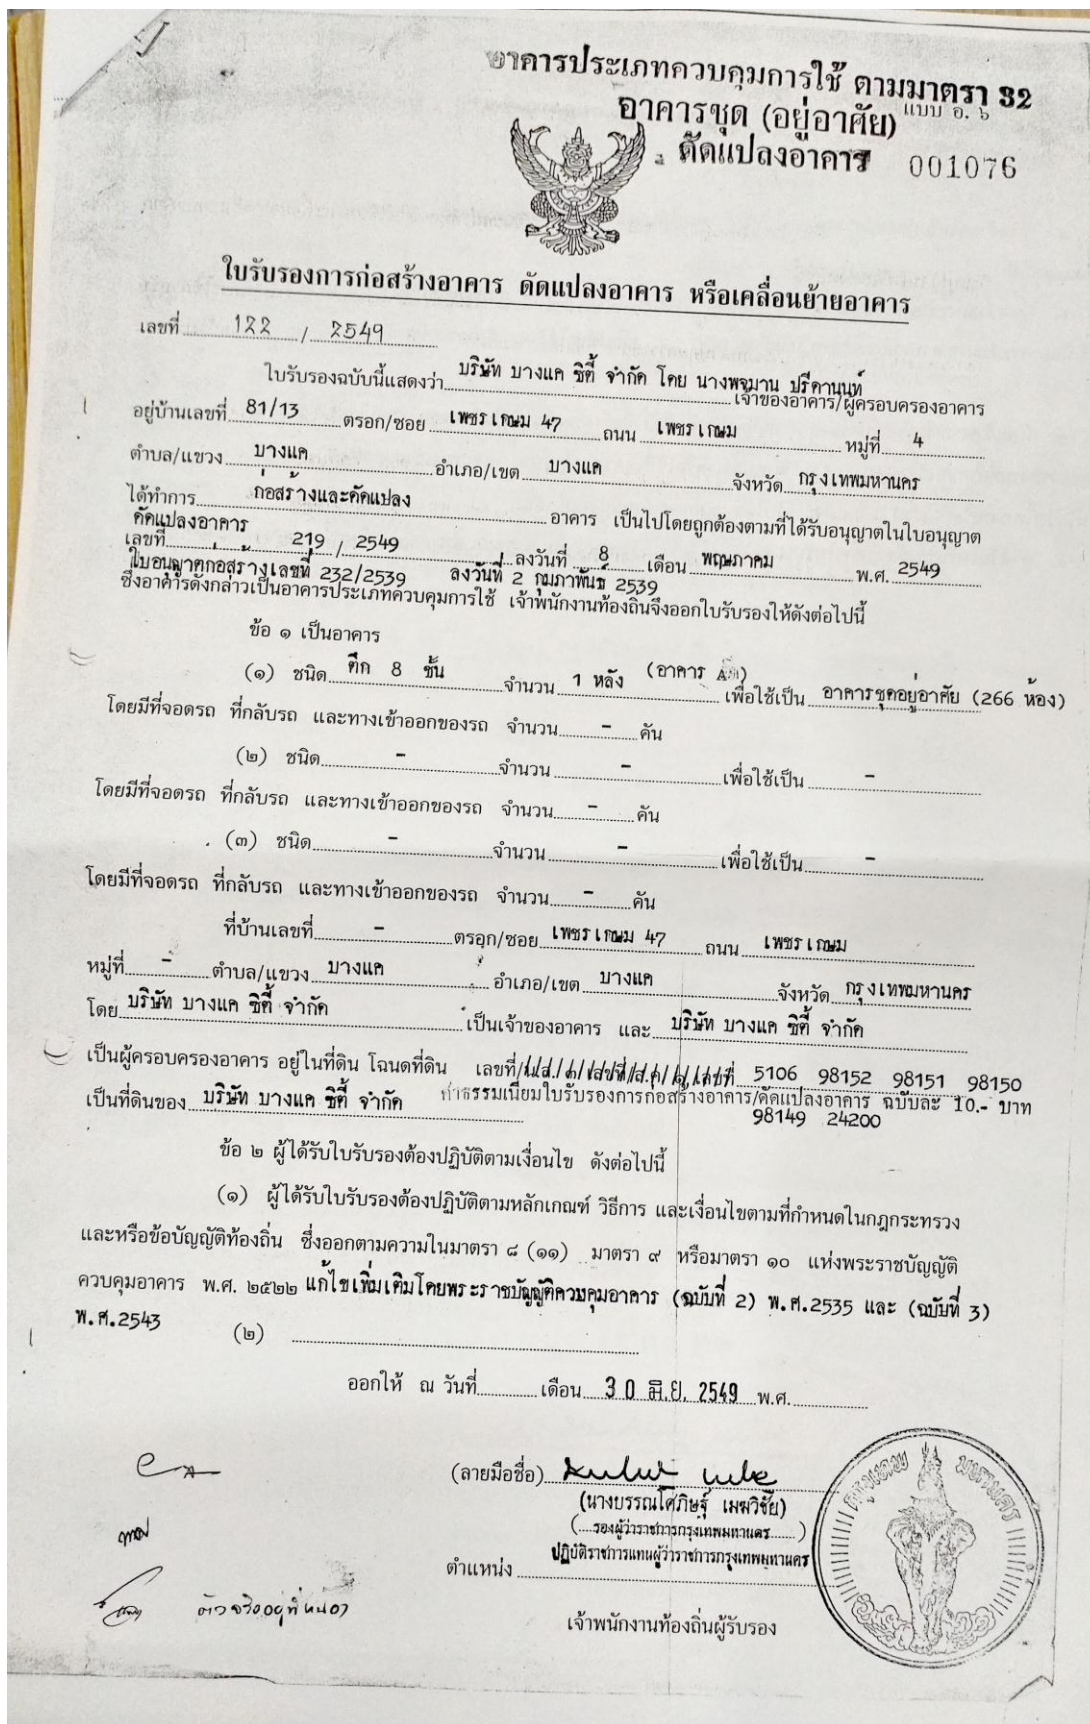 อาคารประเภทควบคุมการใช้ ตามมาตรา 32
แบบ อ. ๖
อาคารชุด (อยู่อาศัย)
ดัดแปลงอาคาร 001076
ใบรับรองการก่อสร้างอาคาร ดัดแปลงอาคาร หรือเคลื่อนย้ายอาคาร
เลขที่ 122 / 2549
ใบรับรองฉบับนี้แสดงว่า บริษัท บางแค ซิตี้ จำกัด โดย นางพจมาน ปรีดานนท์ เจ้าของอาคาร/ผู้ครอบครองอาคาร
อยู่บ้านเลขที่ 81/13 ตรอก/ซอย เพชรเกษม 47 ถนน เพชรเกษม หมู่ที่ 4
ตำบล/แขวง บางแค อำเภอ/เขต บางแค จังหวัด กรุงเทพมหานคร
ได้ทำการ ก่อสร้างและดัดแปลง อาคาร เป็นไปโดยถูกต้องตามที่ได้รับอนุญาตในใบอนุญาต
ดัดแปลงอาคาร
เลขที่ 219 / 2549 ลงวันที่ 8 เดือน พฤษภาคม พ.ศ. 2549
ใบอนุญาตก่อสร้างเลขที่ 232/2539 ลงวันที่ 2 กุมภาพันธ์ 2539
ซึ่งอาคารดังกล่าวเป็นอาคารประเภทควบคุมการใช้ เจ้าพนักงานท้องถิ่นจึงออกใบรับรองให้ดังต่อไปนี้
ข้อ ๑ เป็นอาคาร
(๑) ชนิด ตึก 8 ชั้น จำนวน 1 หลัง (อาคาร A) เพื่อใช้เป็น อาคารชุดอยู่อาศัย (266 ห้อง)
โดยมีที่จอดรถ ที่กลับรถ และทางเข้าออกของรถ จำนวน - คัน
(๒) ชนิด - จำนวน - เพื่อใช้เป็น -
โดยมีที่จอดรถ ที่กลับรถ และทางเข้าออกของรถ จำนวน - คัน
(๓) ชนิด - จำนวน - เพื่อใช้เป็น -
โดยมีที่จอดรถ ที่กลับรถ และทางเข้าออกของรถ จำนวน - คัน
ที่บ้านเลขที่ - ตรอก/ซอย เพชรเกษม 47 ถนน เพชรเกษม
หมู่ที่ - ตำบล/แขวง บางแค อำเภอ/เขต บางแค จังหวัด กรุงเทพมหานคร
โดย บริษัท บางแค ซิตี้ จำกัด เป็นเจ้าของอาคาร และ บริษัท บางแค ซิตี้ จำกัด
เป็นผู้ครอบครองอาคาร อยู่ในที่ดิน โฉนดที่ดิน เลขที่/ 5106 98152 98151 98150
เป็นที่ดินของ บริษัท บางแค ซิตี้ จำกัด ค่าธรรมเนียมใบรับรองการก่อสร้างอาคาร/ดัดแปลงอาคาร ฉบับละ 10.- บาท
98149 24200
ข้อ ๒ ผู้ได้รับใบรับรองต้องปฏิบัติตามเงื่อนไข ดังต่อไปนี้
(๑) ผู้ได้รับใบรับรองต้องปฏิบัติตามหลักเกณฑ์ วิธีการ และเงื่อนไขตามที่กำหนดในกฎกระทรวง
และหรือข้อบัญญัติท้องถิ่น ซึ่งออกตามความในมาตรา ๘ (๑๑) มาตรา ๙ หรือมาตรา ๑๐ แห่งพระราชบัญญัติ
ควบคุมอาคาร พ.ศ. ๒๕๒๒ แก้ไขเพิ่มเติมโดยพระราชบัญญัติควบคุมอาคาร (ฉบับที่ 2) พ.ศ.2535 และ (ฉบับที่ 3)
พ.ศ.2543
(๒)
ออกให้ ณ วันที่ เดือน 30 มิ.ย. 2549 พ.ศ.
(ลายมือชื่อ)
(นางบรรณโศภิษฐ์ เมฆวิชัย)
(รองผู้ว่าราชการกรุงเทพมหานคร)
ปฏิบัติราชการแทนผู้ว่าราชการกรุงเทพมหานคร
ตำแหน่ง
เจ้าพนักงานท้องถิ่นผู้รับรอง
กรุงเทพมหานคร